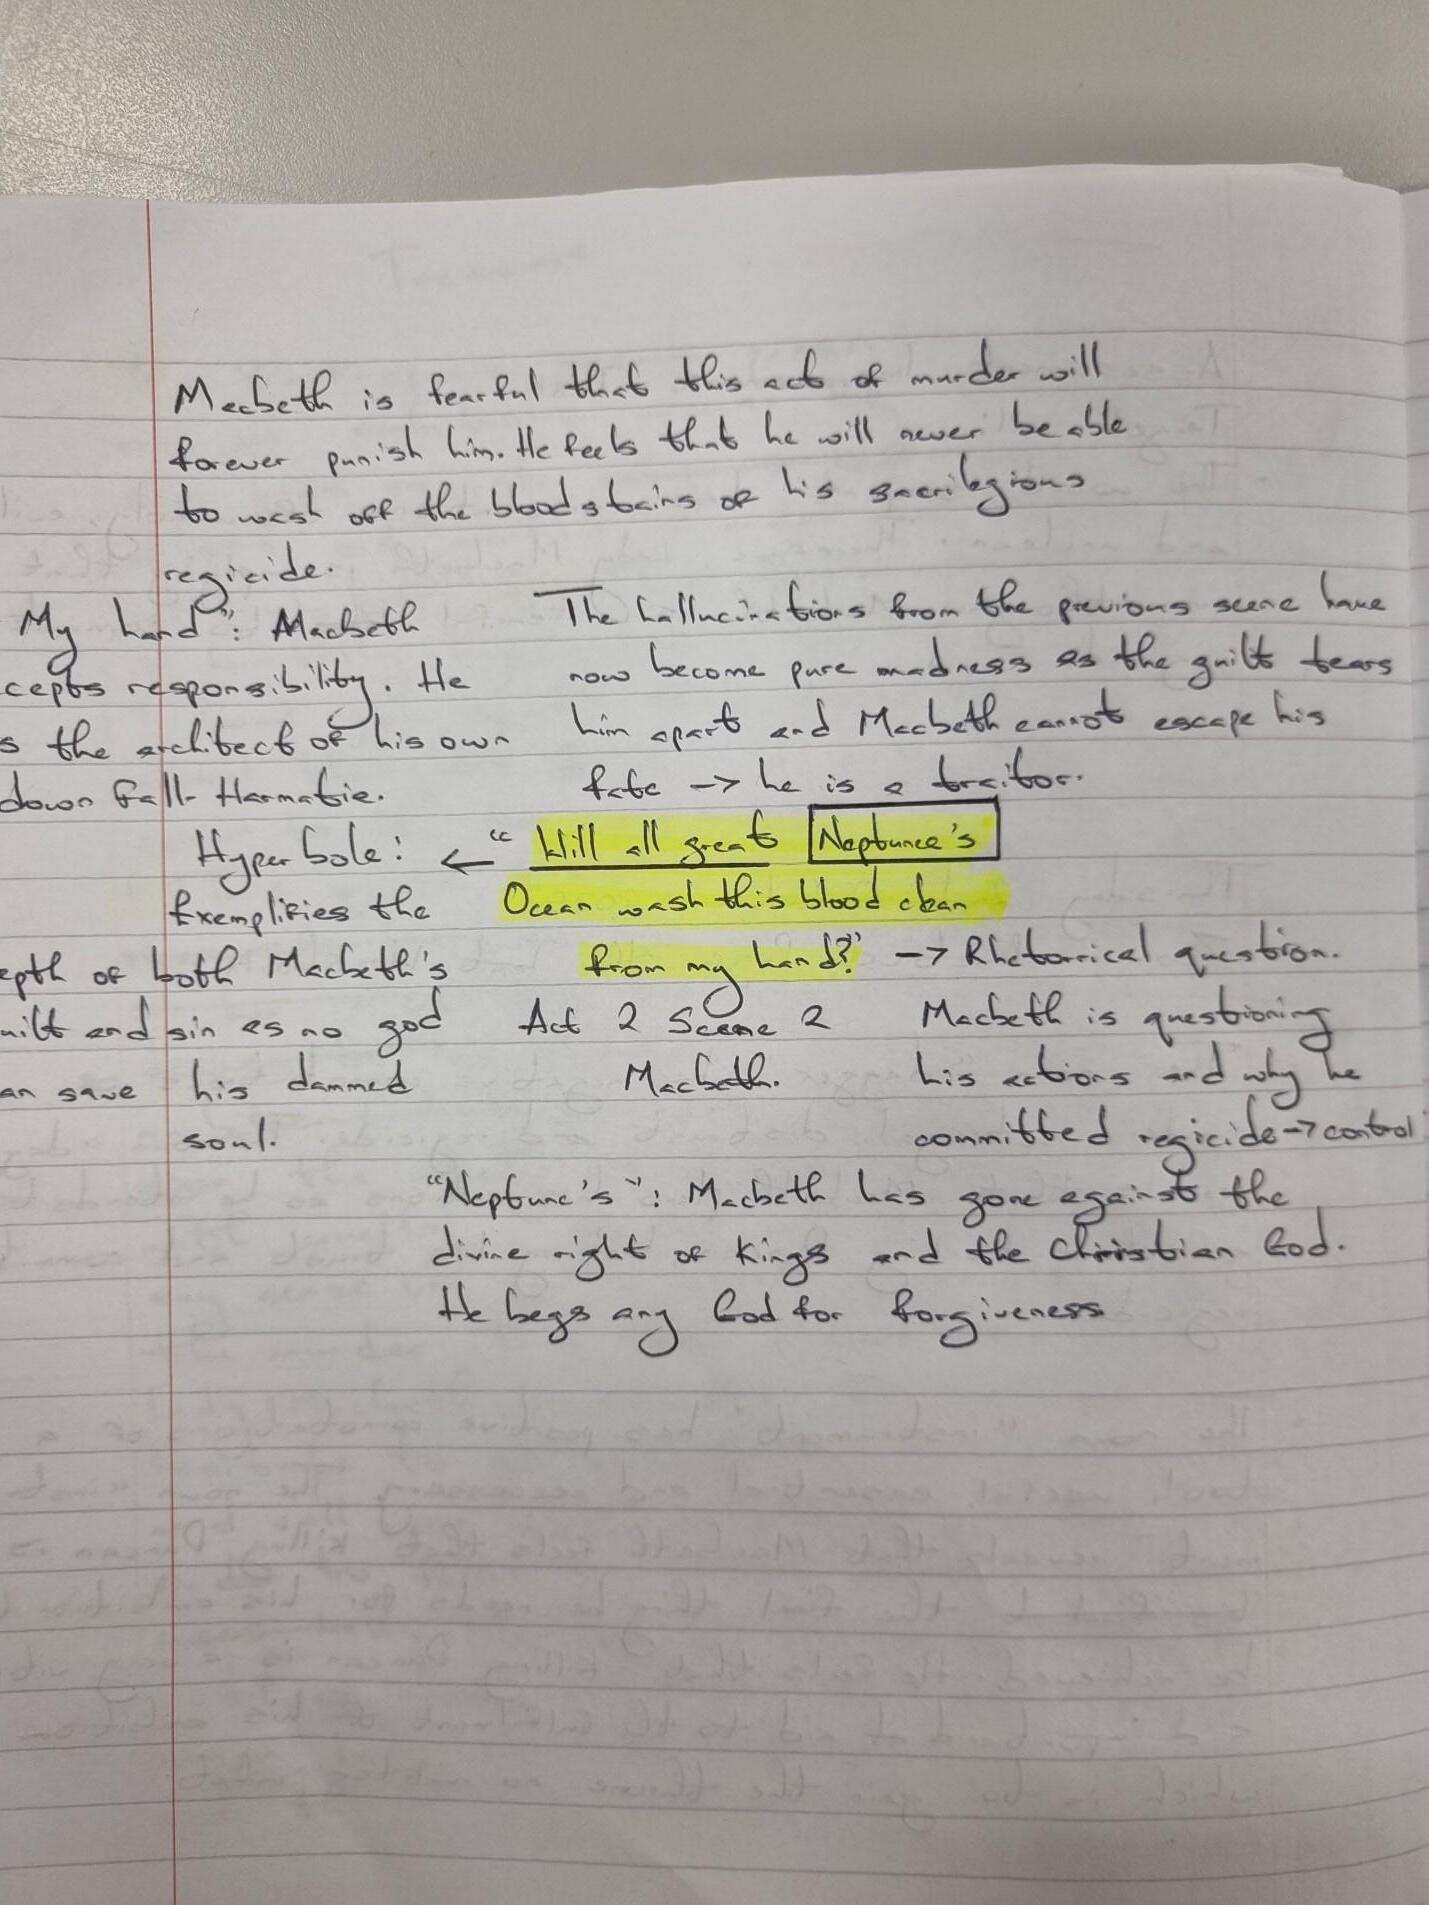 Macbeth is fearful that this act of murder will
forever punish him. He feels that he will never be able
to wash off the bloodstains of his sacrilegious
regicide.
My hand": Macbeth
cepts responsibility. He
s the architect of his own
downfall- Harmatie.
The hallucinations from the previous scene have
now become pure madness as the guilt tears
him apart and Macbeth cannot escape his
fate -> he is a traitor.
Hyperbole: ← "Will all great Neptunee's
Ocean wash this blood clean
from my hand?" -> Rhetorrical question.
Act 2 Scene 2
Macbeth.
Exemplifies the
epth of both Macbeth's
uilt and sin as no god
an save his dammed
soul.
Macbeth is questioning
his actions and why he
committed regicide -> control
"Neptune's": Macbeth has gone against the
divine right of Kings and the Christian God.
He begs any God for forgiveness